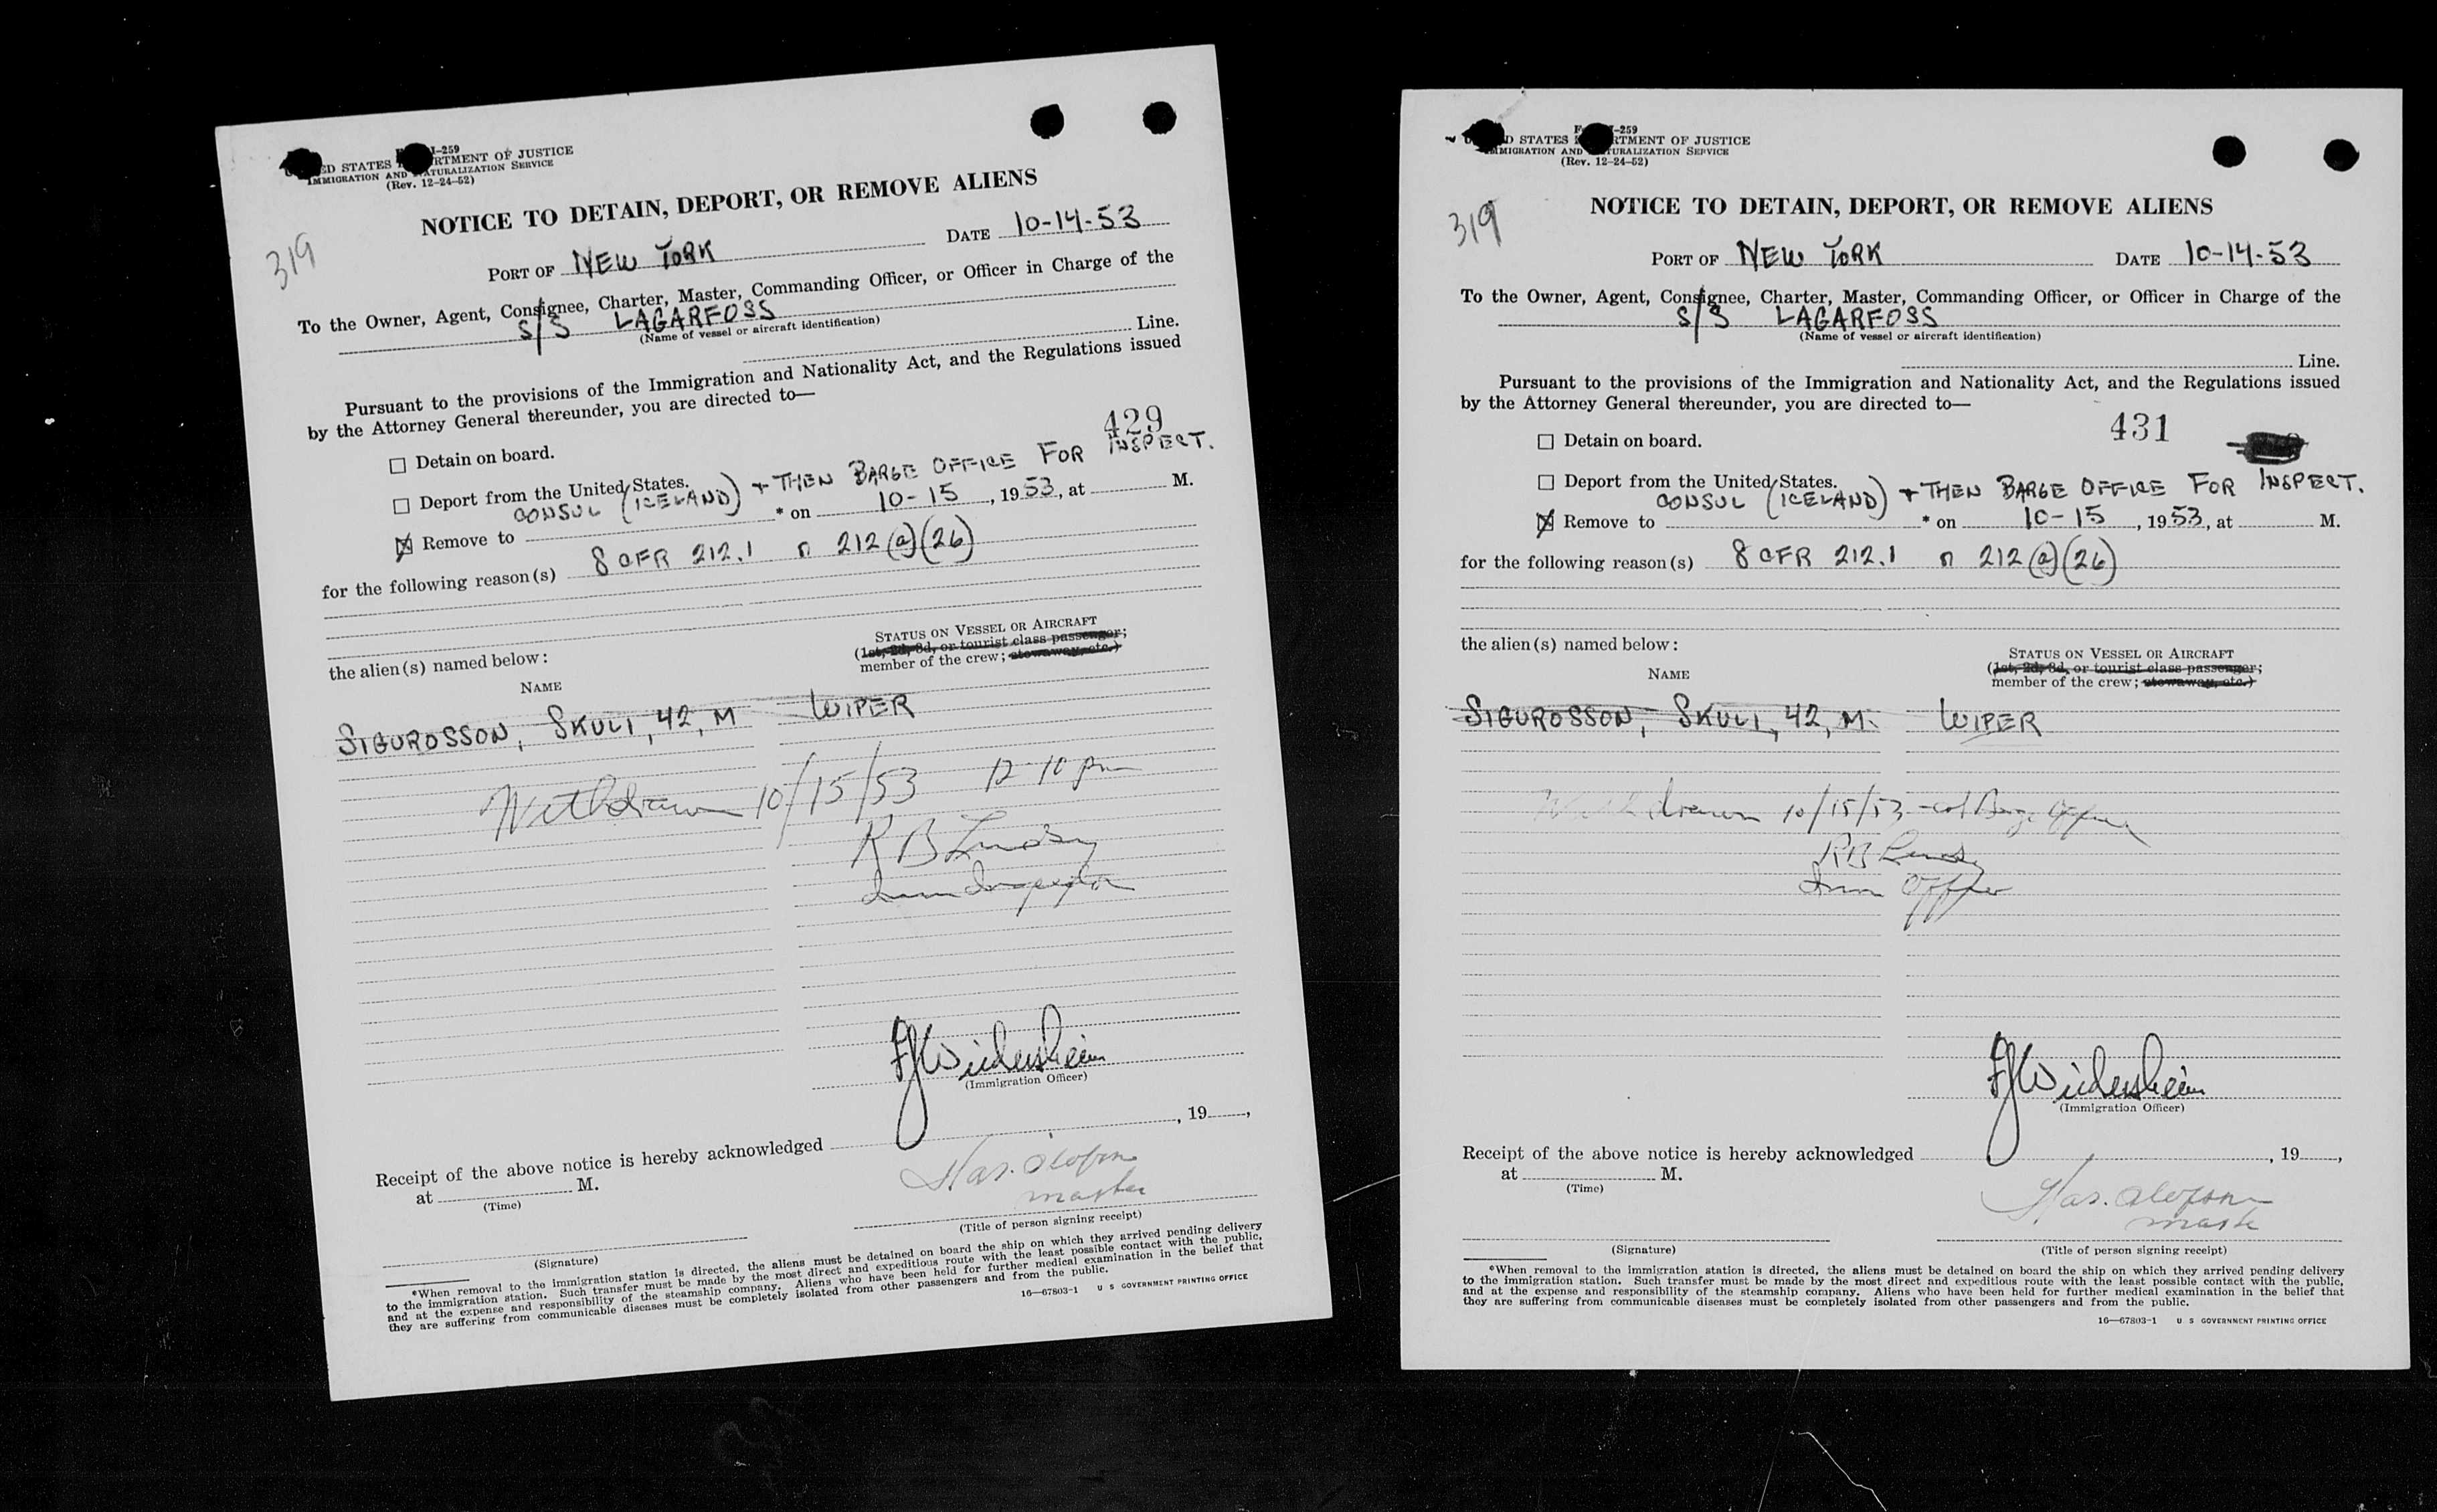 -259
ED STATES RTMENT OF JUSTICE
IMMIGRATION AND NATURALIZATION SERVICE
(Rev. 12-24-52)
319
NOTICE TO DETAIN, DEPORT, OR REMOVE ALIENS
PORT OF NEW YORK DATE 10-14-53
To the Owner, Agent, Consignee, Charter, Master, Commanding Officer, or Officer in Charge of the
S/S LAGARFOSS
(Name of vessel or aircraft identification)
Line.
Pursuant to the provisions of the Immigration and Nationality Act, and the Regulations issued
by the Attorney General thereunder, you are directed to—
429
☐ Detain on board.
☐ Deport from the United States.
CONSUL (ICELAND) + THEN BARGE OFFICE FOR INSPECT.
☒ Remove to * on 10-15, 1953, at M.
for the following reason(s) 8 CFR 212.1 n 212(a)(26)
the alien(s) named below:
STATUS ON VESSEL OR AIRCRAFT
(1st, 2d, 3d, or tourist class passenger;
member of the crew; stowaway, etc.)
NAME
SIGUROSSON, SKULI, 42, M WIPER
Withdrawn 10/15/53 12 10 pm
R B Lindsy
Imm Inspector
FJWiedersheim
(Immigration Officer)
Receipt of the above notice is hereby acknowledged , 19 ,
at M.
(Time)
Olofsson
master
(Title of person signing receipt)
(Signature)
*When removal to the immigration station is directed, the aliens must be detained on board the ship on which they arrived pending delivery
to the immigration station. Such transfer must be made by the most direct and expeditious route with the least possible contact with the public,
and at the expense and responsibility of the steamship company. Aliens who have been held for further medical examination in the belief that
they are suffering from communicable diseases must be completely isolated from other passengers and from the public.
16—67803-1 U S GOVERNMENT PRINTING OFFICE
-259
D STATES RTMENT OF JUSTICE
IMMIGRATION AND NATURALIZATION SERVICE
(Rev. 12-24-52)
319
NOTICE TO DETAIN, DEPORT, OR REMOVE ALIENS
PORT OF NEW YORK DATE 10-14-53
To the Owner, Agent, Consignee, Charter, Master, Commanding Officer, or Officer in Charge of the
S/S LAGARFOSS
(Name of vessel or aircraft identification)
Line.
Pursuant to the provisions of the Immigration and Nationality Act, and the Regulations issued
by the Attorney General thereunder, you are directed to—
431
☐ Detain on board.
☐ Deport from the United States.
CONSUL (ICELAND) + THEN BARGE OFFICE FOR INSPECT.
☒ Remove to * on 10-15, 1953, at M.
for the following reason(s) 8 CFR 212.1 n 212(a)(26)
the alien(s) named below:
STATUS ON VESSEL OR AIRCRAFT
(1st, 2d, 3d, or tourist class passenger;
member of the crew; stowaway, etc.)
NAME
SIGUROSSON, SKULI, 42, M. WIPER
Withdrawn 10/15/53 - at Barge Office
RB Lindsy
Imm Officer
FJWiedersheim
(Immigration Officer)
Receipt of the above notice is hereby acknowledged , 19 ,
at M.
(Time)
Olofsson
master
(Signature)
(Title of person signing receipt)
*When removal to the immigration station is directed, the aliens must be detained on board the ship on which they arrived pending delivery
to the immigration station. Such transfer must be made by the most direct and expeditious route with the least possible contact with the public,
and at the expense and responsibility of the steamship company. Aliens who have been held for further medical examination in the belief that
they are suffering from communicable diseases must be completely isolated from other passengers and from the public.
16—67803-1 U S GOVERNMENT PRINTING OFFICE